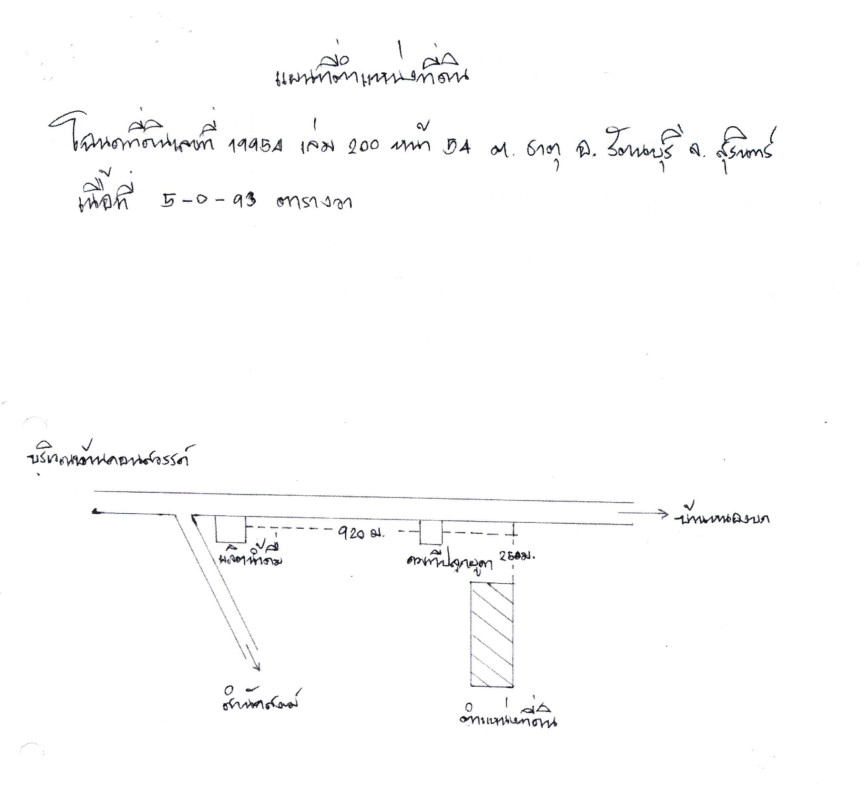 แผนที่ตำแหน่งที่ดิน
โฉนดที่ดินเลขที่ 19954 เล่ม 200 หน้า 54 ต. ธาตุ อ. รัตนบุรี จ. สุรินทร์
เนื้อที่ 5-0-93 ตารางวา
บริเวณบ้านดอนสวรรค์
บ้านหนองบก
920 ม.
ผลิตน้ำดื่ม
สำนักสงฆ์
ตำแหน่งที่ดิน